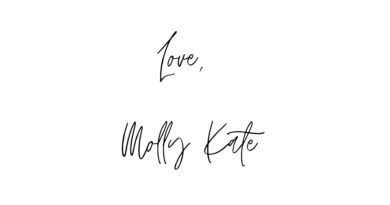 Love,
Molly Kate